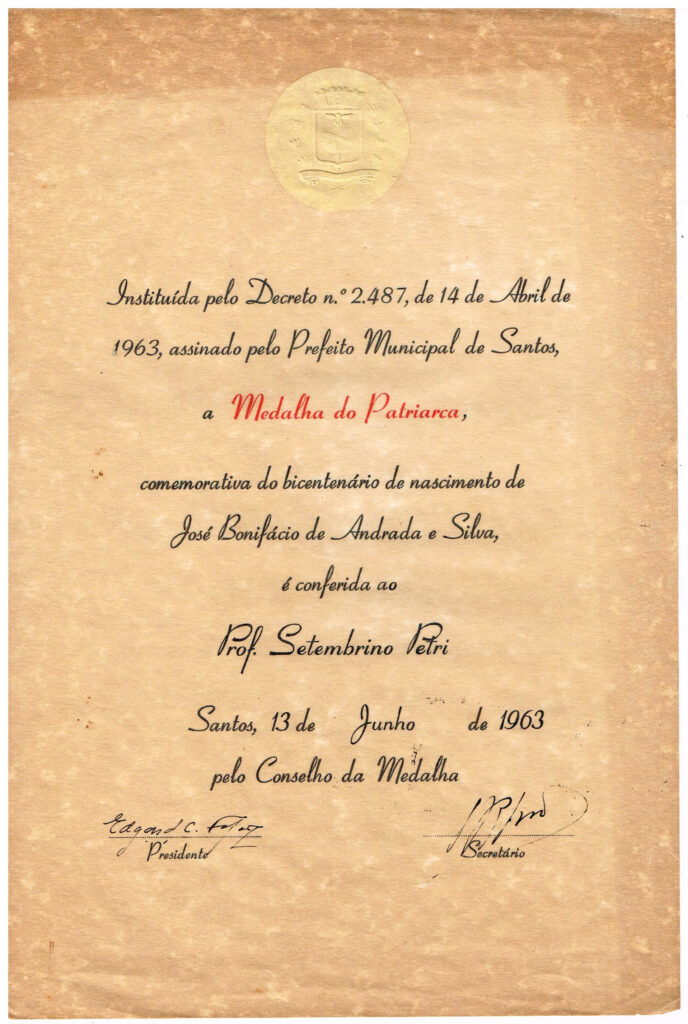 Instituída pelo Decreto n.º 2.487, de 14 de Abril de
1963, assinado pelo Prefeito Municipal de Santos,
a Medalha do Patriarca,
comemorativa do bicentenário de nascimento de
José Bonifácio de Andrada e Silva,
é conferida ao
Prof. Setembrino Petri
Santos, 13 de Junho de 1963
pelo Conselho da Medalha
Edgard C.
Presidente Secretário